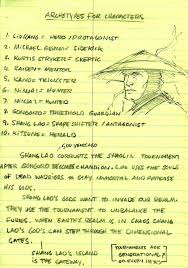 ARCHETYPES FOR CHARACTERS
1. LIU KANG : HERO/PROTAGONIST
2. MICHAEL GRIMM : SIDEKICK
3. KURTIS STRYKER : SKEPTIC
4. RAIDEN : MENTOR
5. KANO : TRICKSTER
6. NINJA 1 : HUNTER
7. NINJA 2 : HUNTED
8. GONGORO : THRESHOLD GUARDIAN
9. SHANG LAO : SHAPESHIFTER/ANTAGONIST
10. KITSUNE : HERALD
600 YEARS AGO
SHANG LAO CORRUPTS THE SHAOLIN TOURNAMENT
AFTER GONGORO BECOMES CHAMPION. HE USES THE SOULS
OF DEAD WARRIORS TO STAY IMMORTAL AND APPEASE
HIS GODS.
SHANG LAO'S GODS WANT TO INVADE OUR REALM.
THEY USE THE TOURNAMENT TO UNBALANCE THE
FURIES. WHEN EARTH'S REALM IS IN CHAOS SHANG
LAO'S GODS CAN STEP THROUGH THE DIMENSIONAL
GATES.
SHANG LAO'S ISLAND
IS THE GATEWAY.
TOURNAMENTS ARE
GENERATIONAL?